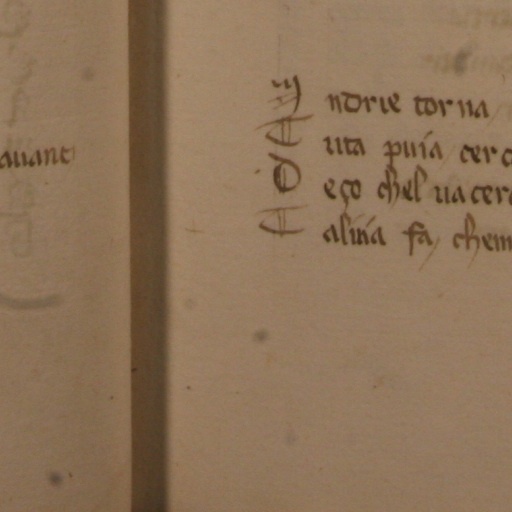 avant
ndrie torna
uta puia cerc
D eço chel va cer
aluia fa chem